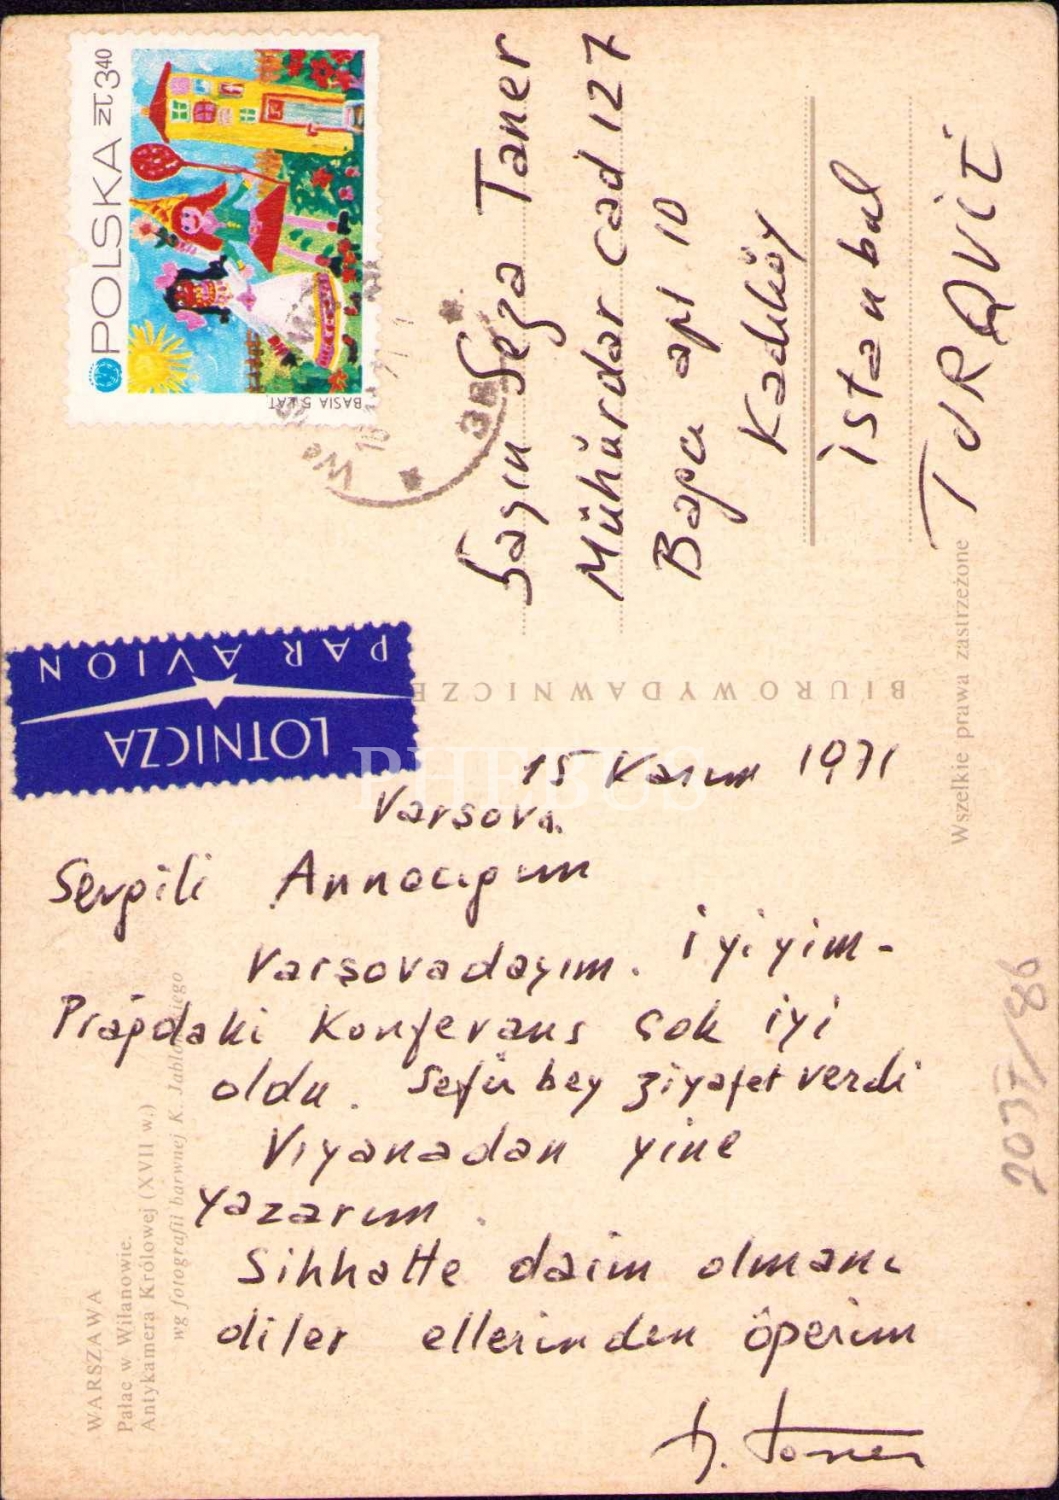 POLSKA ZŁ 3,40
BASIA 5 LAT.
LOTNICZA
PAR AVION
Bayan Seza Taner
Mühürdar cad 127
Bapa apt 10
Kadıköy
İstanbul
TURQUIE
BIURO WYDAWNICZE
Wszelkie prawa zastrzeżone
15 Kasım 1971
Varşova
Sevgili Annecigim
Varşovadayım. iyiyim-
Pragdaki Konferans çok iyi
oldu. Sefir bey ziyafet verdi
Viyanadan yine
yazarım.
Sihhatte daim olmanı
diler ellerinden öperim
Taner
WARSZAWA
Pałac w Wilanowie.
Antykamera Królowej (XVII w.)
wg fotografii barwnej K. Jabłońskiego
PHEBUS